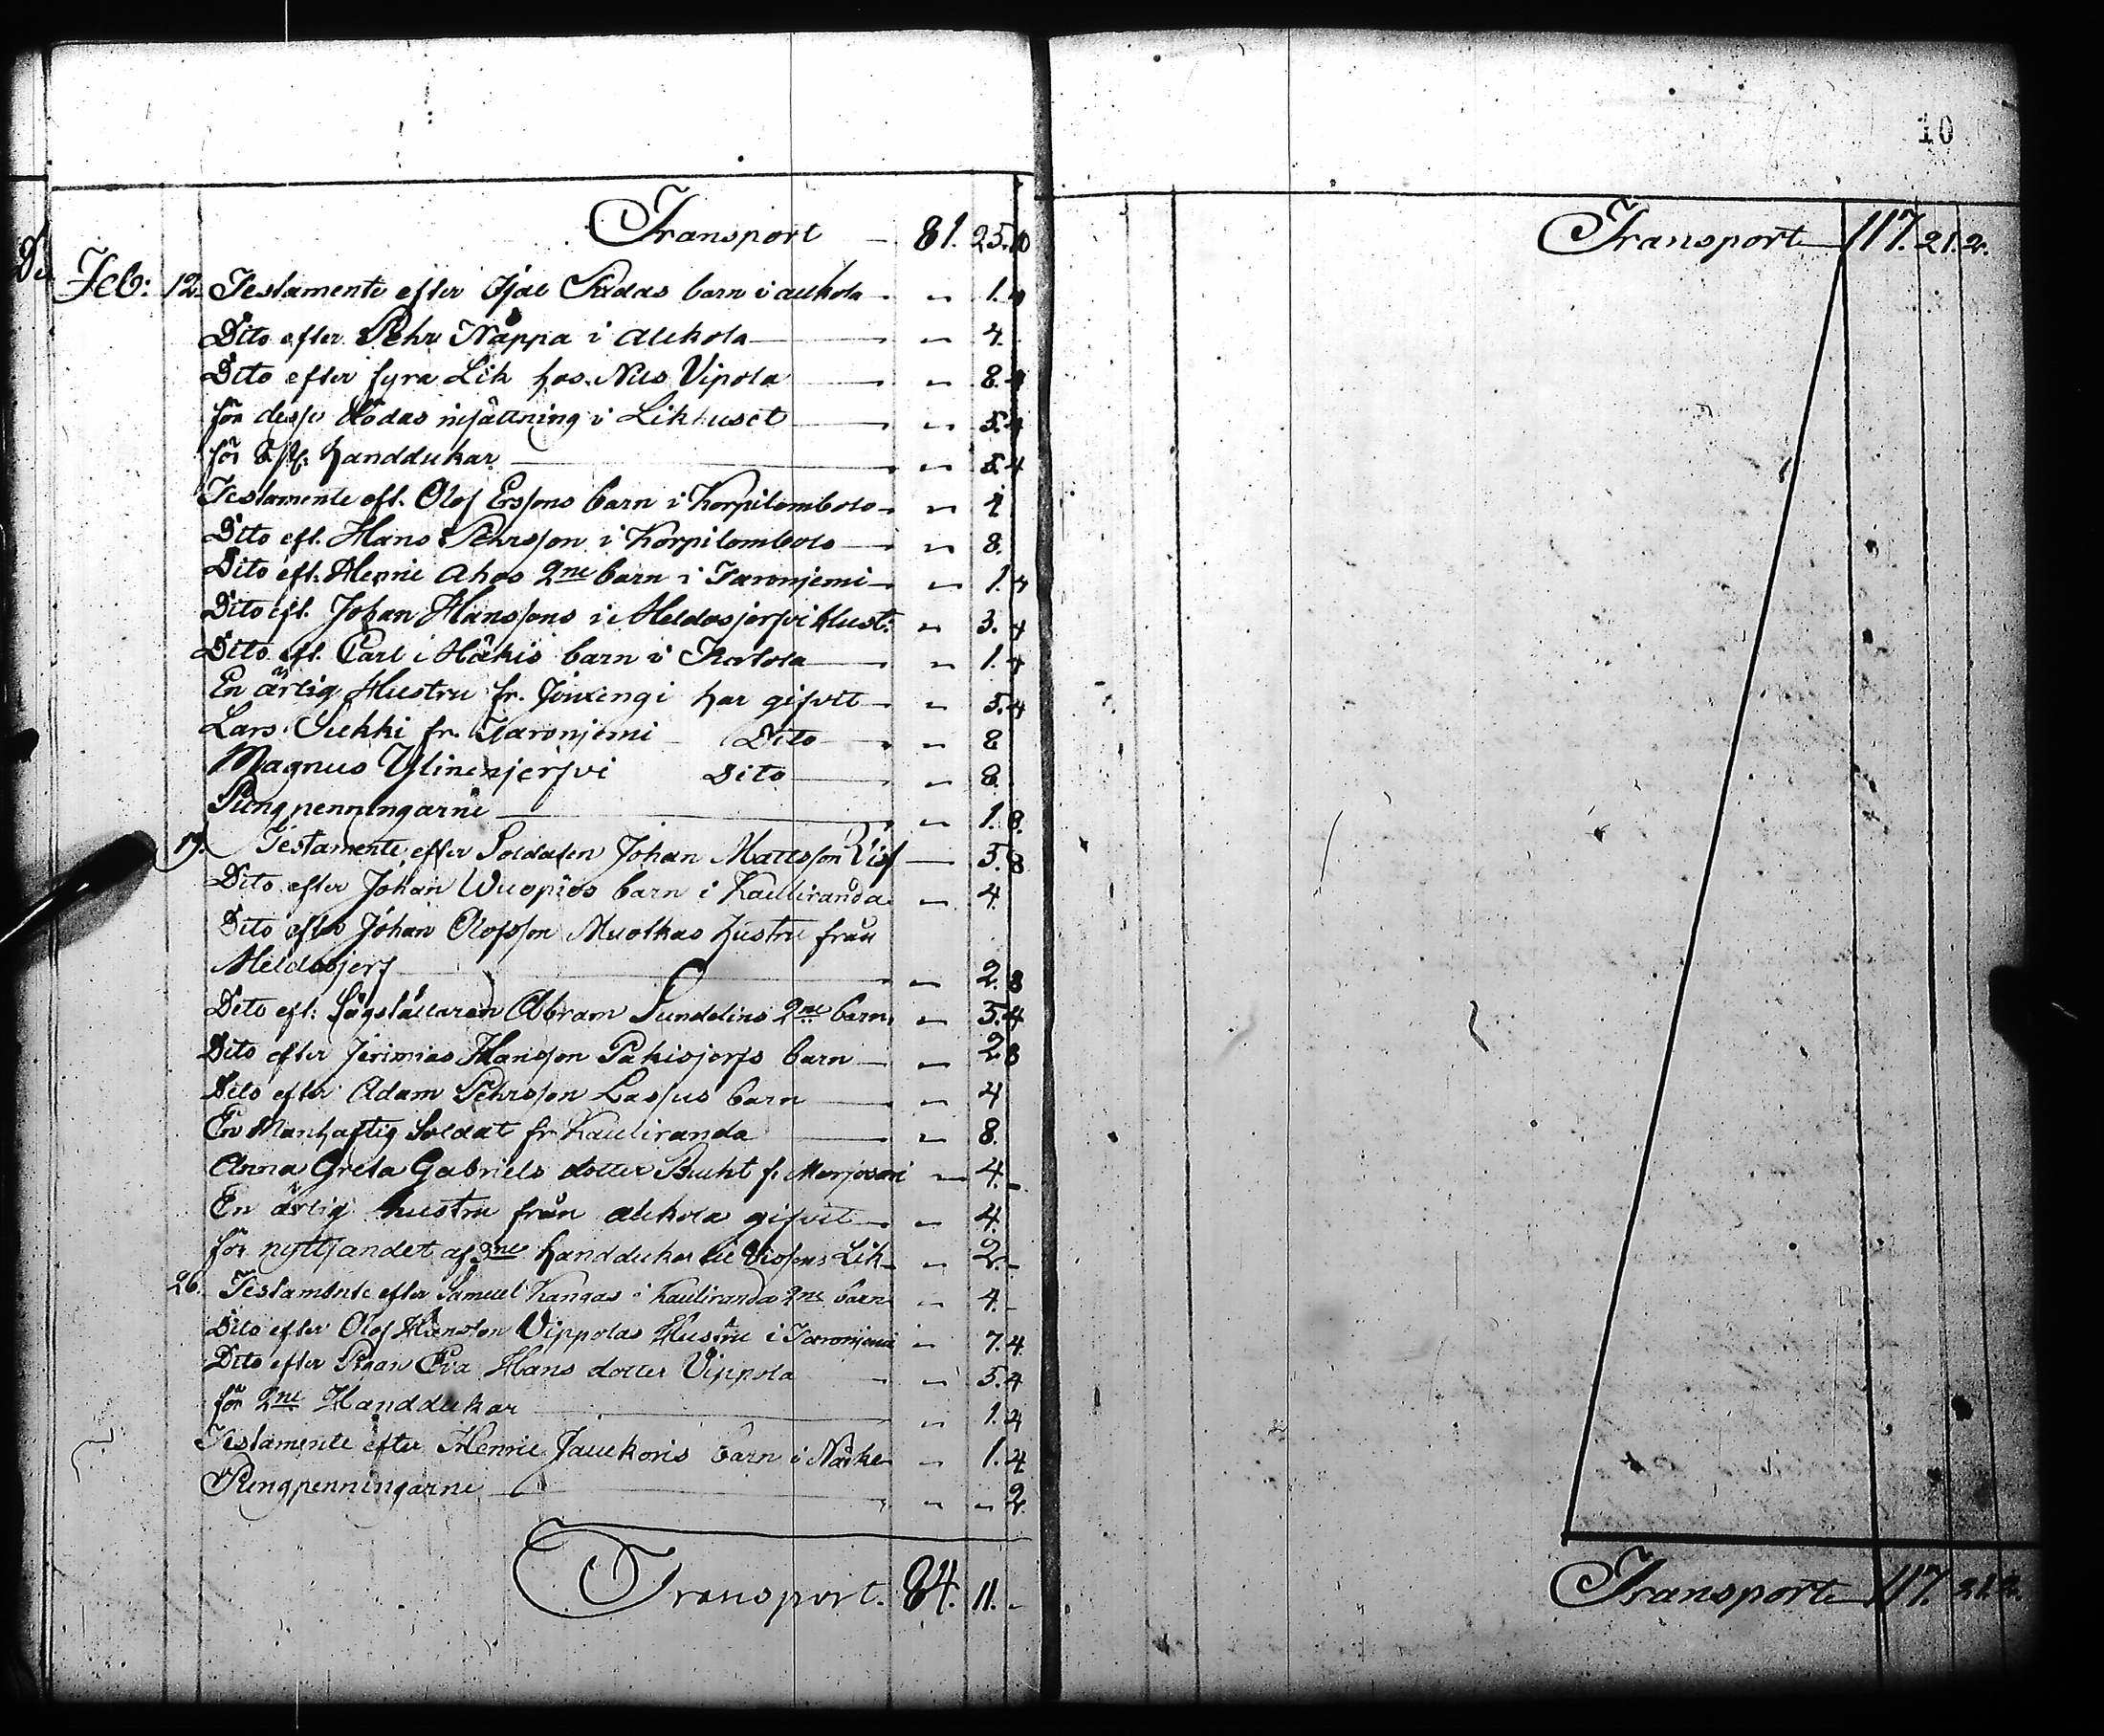 Transport 81. 25. 10
Feb: 12. Testamente efter barn i alkola " 1. 4
Dito efter Pehr Nåppa i Alkola " 4.
Dito efter fyra Lik hos Nils Vipola " 8.
för desse dödas insättning i Likhuset " 5. 4
för Handdukar " 5. 4
Testamente eft. Olof Erssons barn i Korpilombolo " 4
Dito eft. Hans Pehrsson i Korpilombolo " 8.
Dito eft. Henric Ahos 2ne barn i Taronjemi " 1. 4
Dito eft. Johan Hanssons i Meldosjerfvi Hust: " 3. 4
Dito eft. Carl i Håkis barn i " 1. 4
En ärlig Hustru fr. har gifvit " 5. 4
Lars Sukki fr. Taronjemi Dito " 8
Magnus Ylinenjerfvi Dito " 8.
Pungpenningarne " 1. 8.
19. Testamente efter Soldaten Johan Mattsson Vis 5. 8
Dito efter Johan Wuopios barn i Kauliranda " 4.
Dito efter Johan Olofsson Muotkas hustru från
Meldosjerf " 2. 8
Dito eft: Sågställaren Abram Sundelins 2ne barn " 5. 4
Dito efter Jerimias Hansson Pakisjerfs barn " 2 8
Dito efter Adam Pehrsson Lassus barn " 4
En Manhaftig Soldat fr Kauliranda " 8.
Anna Greta Gabriels dotter Bucht f. Marjosari " 4. -
En ärlig hustru från alkola gifvit " 4.
för nyttjandet af 2ne handdukar til Vissens Lik " 2. -
26. Testamente efter Samuel Kangas i Kauliranda 2ne barn " 4. -
Dito efter Olof Hansson Vippolas Hustru i Taronjemi " 7. 4
Dito efter Pigan Eva Hans dotter Vippola " 5. 4
för 2ne Handdukar " 1. 4
Testamente efter Henric Jauekoris barn i Närke " 1. 4
Pungpenningarne " " 2.
Transport. 84. 11. -
10
Transport 117. 21. 2.
Transport 117. 21. 2.